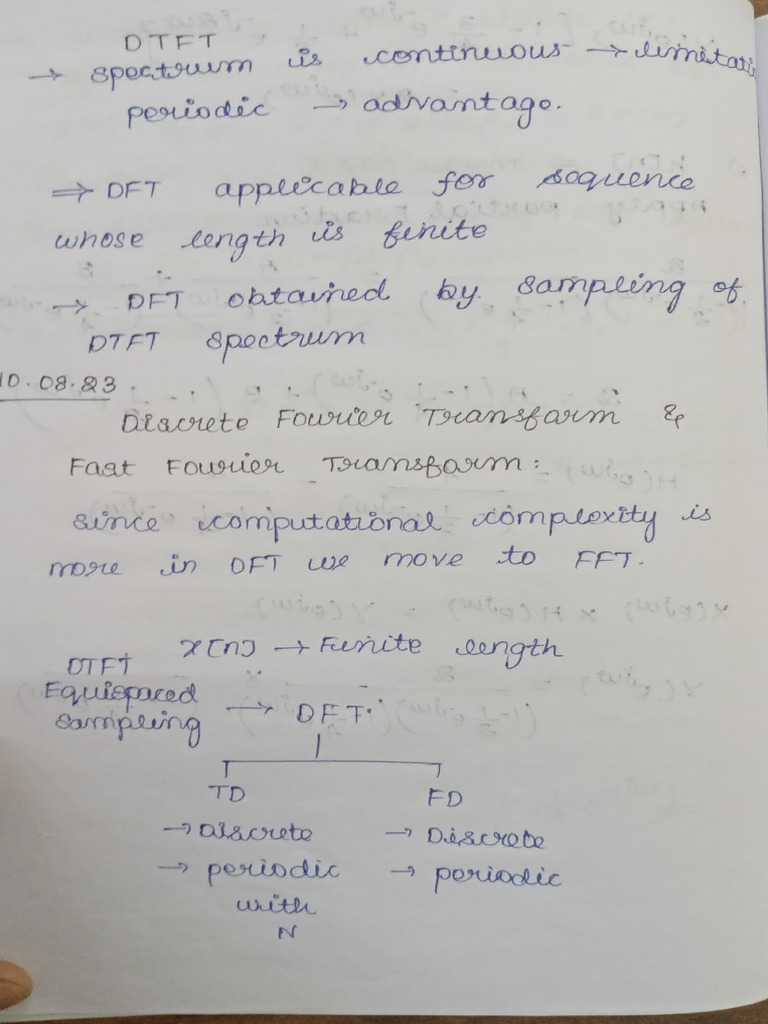 DTFT
→ spectrum is continuous → limitati
periodic → advantage.
⇒ DFT applicable for sequence
whose length is finite
→ DFT obtained by sampling of
DTFT spectrum
10.08.23.
Discrete Fourier Transform &
Fast Fourier Transform:
since computational complexity is
more in DFT we move to FFT.
x[n] → Finite length
DTFT
Equispaced
sampling → DFT.
TD FD
→ Discrete → Discrete
→ periodic → periodic
with
N